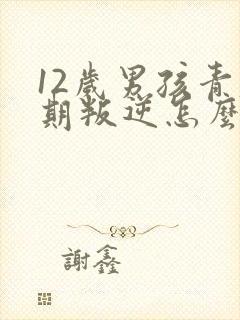 12歲男孩青
期叛逆怎麼
謝鑫